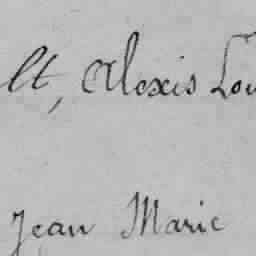 lt, Alexis Lou
Jean Marie